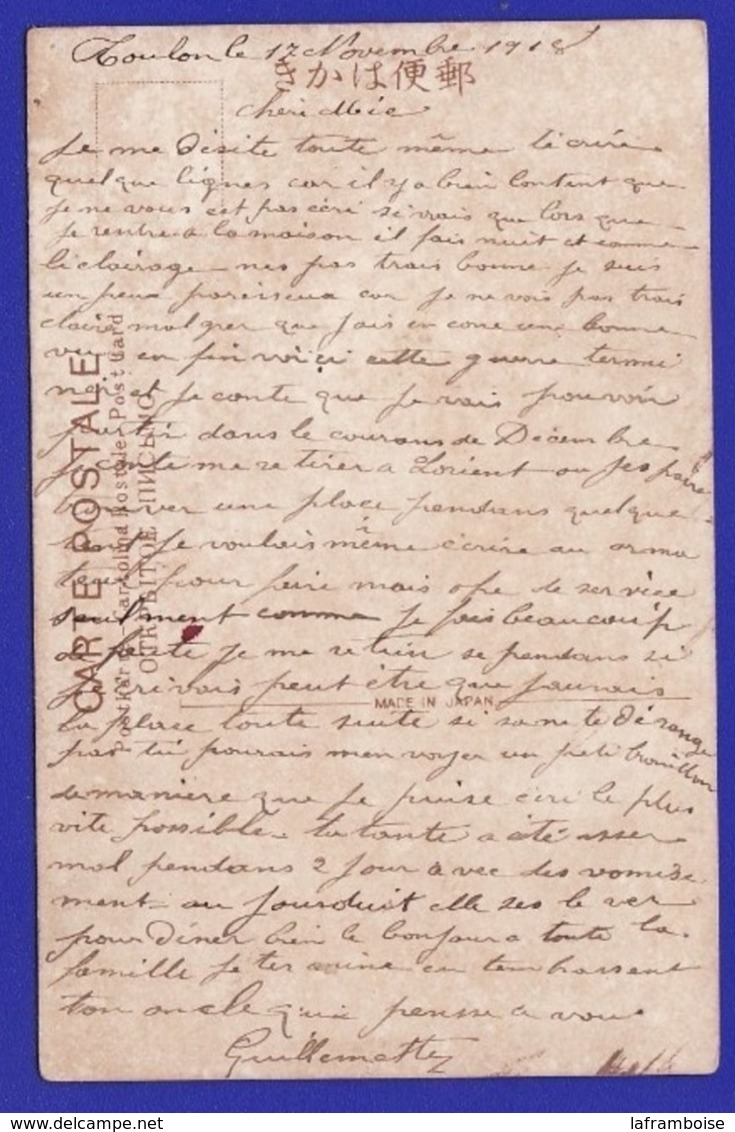 Toulon le 17 Novembre 1918
きかは便郵
cheri
Je me déside toute même técrire
quelque lignes car il y a bien lontent que
je ne vous est pas écri si vrais que lors que
je rentre a la maison il fais nuit et comme
léclairage nes pas trais bonne je suis
un peux paresseux car je ne vois pas trais
claire mal grer que jais en core une bonne
vue en fin voici cette guerre termi
ner et je conte que je vais pouvoir
partir dans le courans de Décembre
je conte me re tirer a Lorient ou jespaire
trouver une place pendans quelque
tent je voulais même écrire au arma
teur pour faire mais de service
seulment comme je fais beaucoup
de faute je me re tien se pendans si
jécrivais peut être que jaurais
la place toute suite si sa ne te dérange
pas tu pourais men voyer un peti brouillon
de manière que je puise écri le plus
vite possible. ta tante a été asser
mal pendans 2 jour avec des vomise
ment au jourduit elle ses le ver
pour diner bien le bonjour a toute la
famille je ter mine en tem brassent
ton oncle qui pensse a vous
Guillemette
CARTE POSTALE
ОТКРЫТОЕ ПИСЬМО
MADE IN JAPAN
laframboise